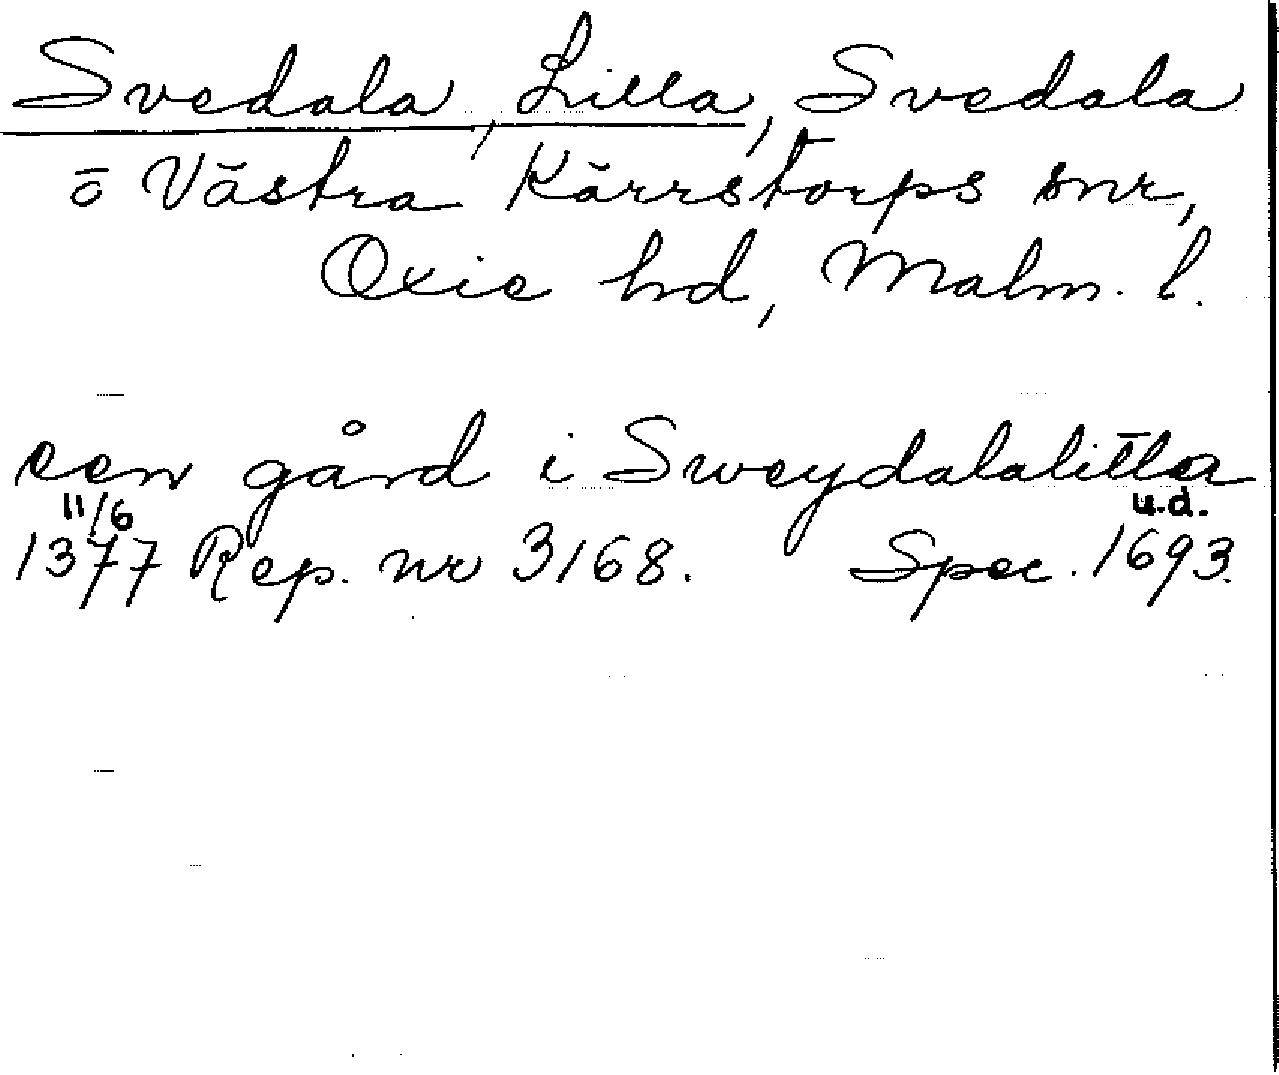 Svedala, Lilla, Svedala
o Västra Kärrstorps snr,
Oxie hd, Malm. l.
een gård i Sweydalalitla
11/6 u.d.
1377 Rep. nr 3168. Spec. 1693.